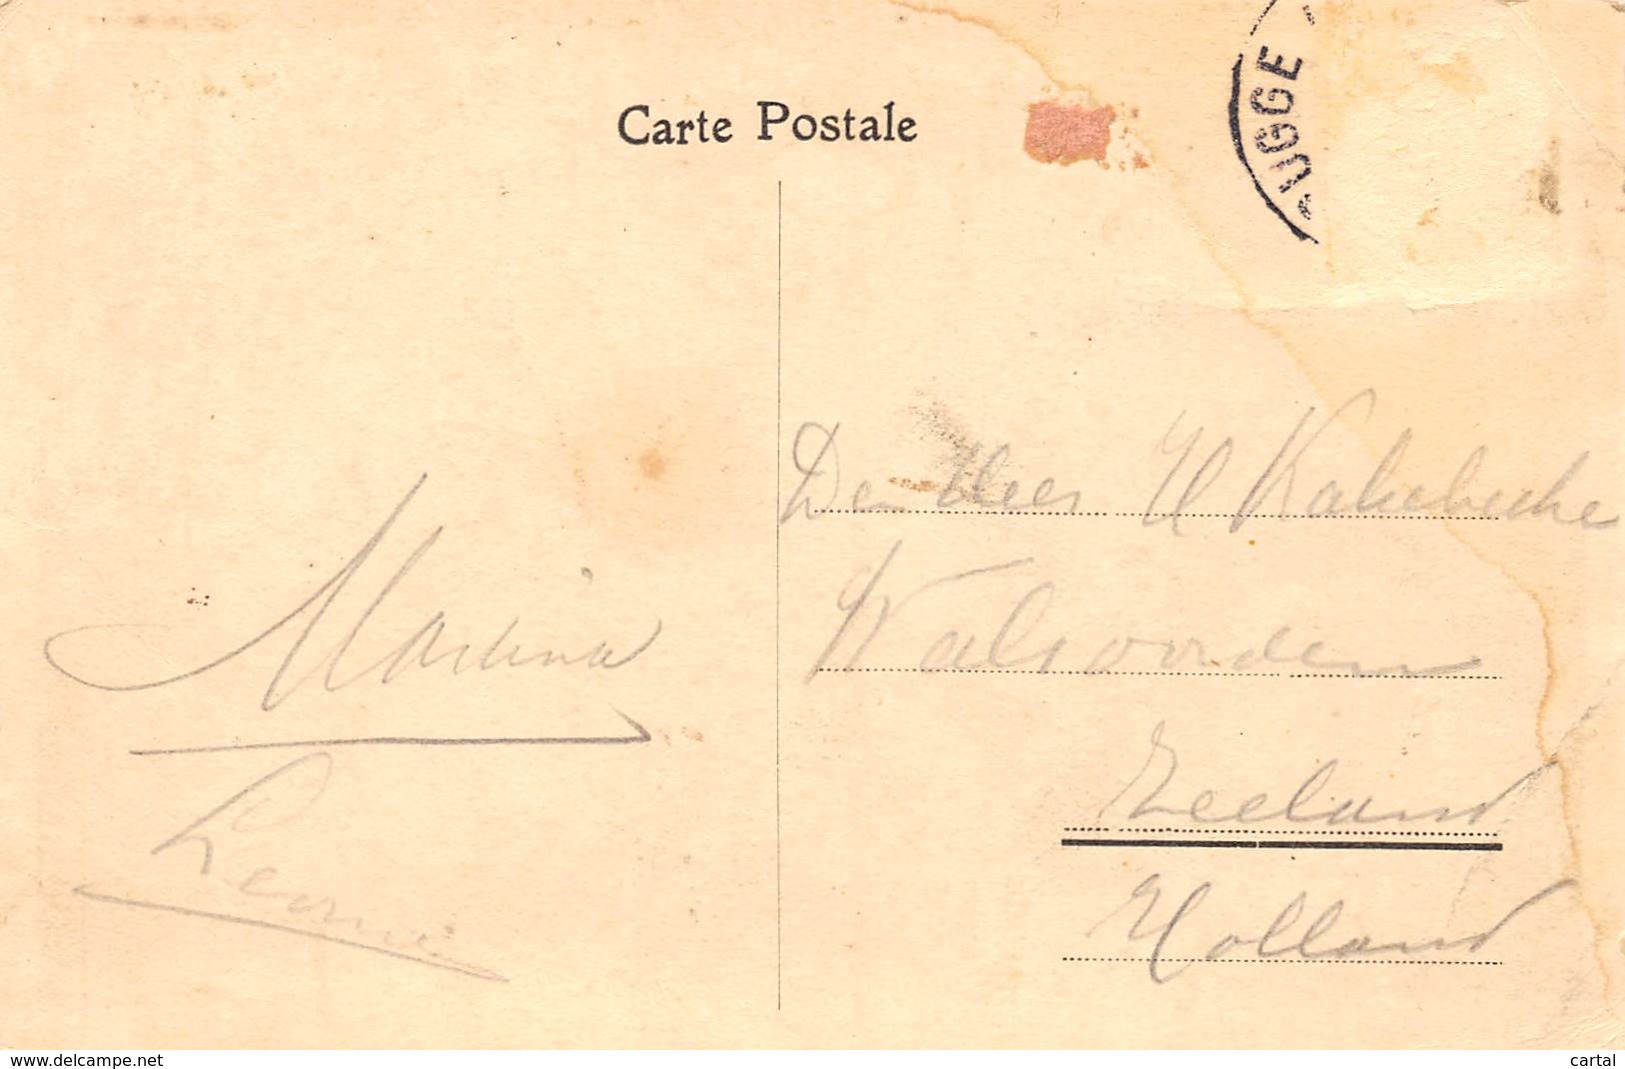 Carte Postale
UGGE
Martina
Leonie
Den Heer H Kalebeke
Walsoorden
Zeeland
Holland
www.delcampe.net
cartal